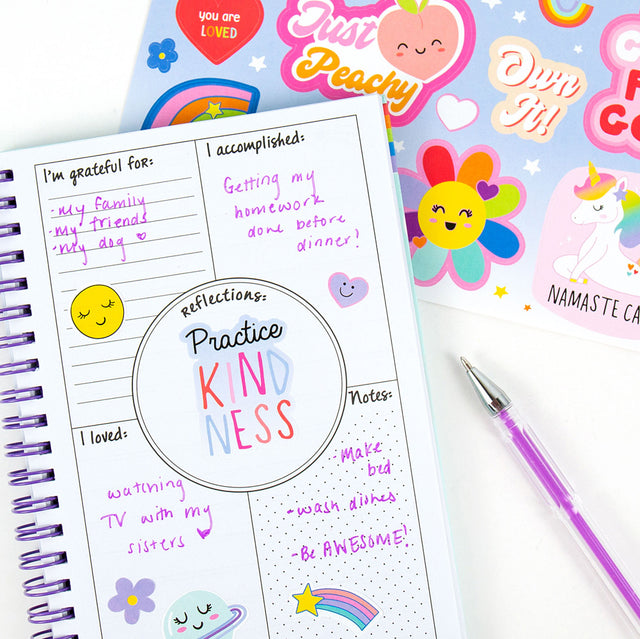 you are
LOVED
Just
Peachy
Own
It!
NAMASTE CA
I'm grateful for:
-my family
-my friends
-my dog
I accomplished:
Getting my
homework
done before
dinner!
Reflections:
Practice
KIND
NESS
I loved:
watching
TV with my
sisters
Notes:
-Make
bed
-wash dishes
-Be AWESOME!